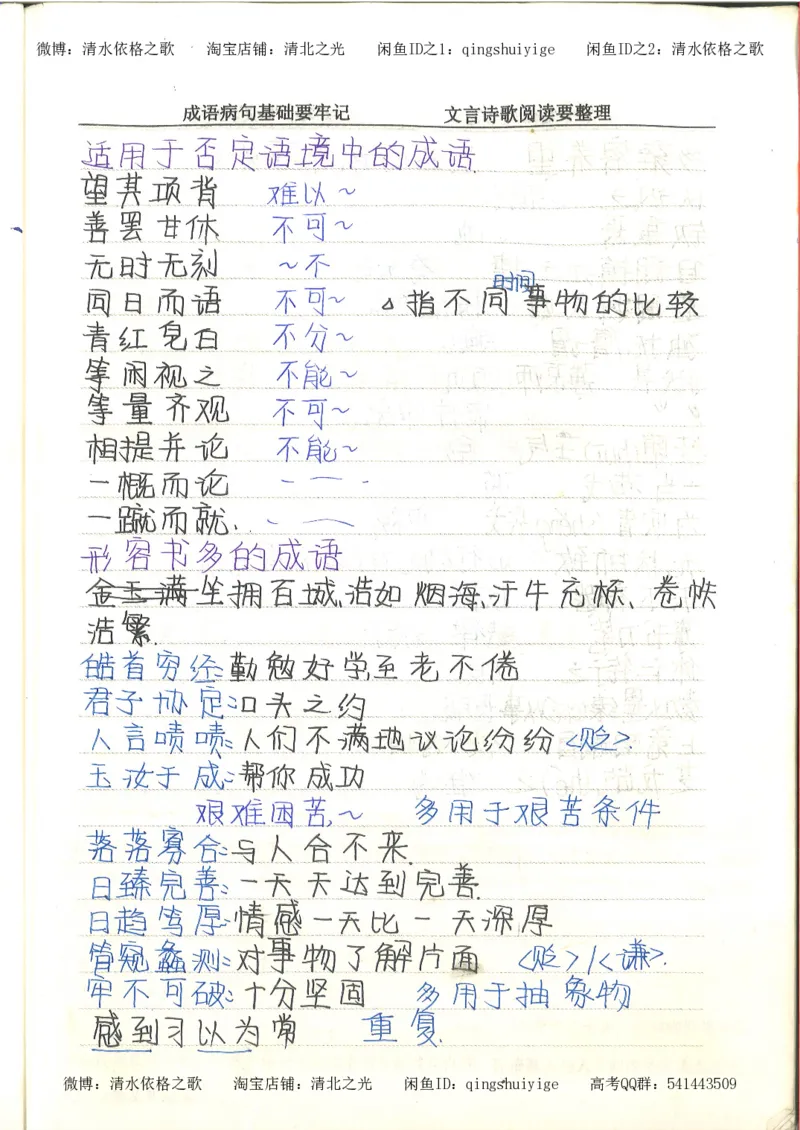 微博：清水依格之歌 淘宝店铺：清北之光 闲鱼ID之1：qingshuiyige 闲鱼ID之2：清水依格之歌
成语病句基础要牢记 文言诗歌阅读要整理
适用于否定语境中的成语
望其项背 难以~
善罢甘休 不可~
无时无刻 ~不
时间
同日而语 不可~ △指不同事物的比较
青红皂白 不分~
等闲视之 不能~
等量齐观 不可~
相提并论 不能~
一概而论
一蹴而就
形容书多的成语
金玉满坐拥百城、浩如烟海、汗牛充栋、卷帙
浩繁.
皓首穷经:勤勉好学至老不倦
君子协定:口头之约
人言啧啧:人们不满地议论纷纷<贬>.
玉汝于成:帮你成功
艰难困苦,~ 多用于艰苦条件
落落寡合:与人合不来.
日臻完善:一天天达到完善.
日趋笃厚:情感一天比一天深厚
管窥蠡测:对事物了解片面 <贬>/<谦>.
牢不可破:十分坚固 多用于抽象物
感到习以为常 重复.
微博：清水依格之歌 淘宝店铺：清北之光 闲鱼ID：qingshuiyige 高考QQ群：541443509